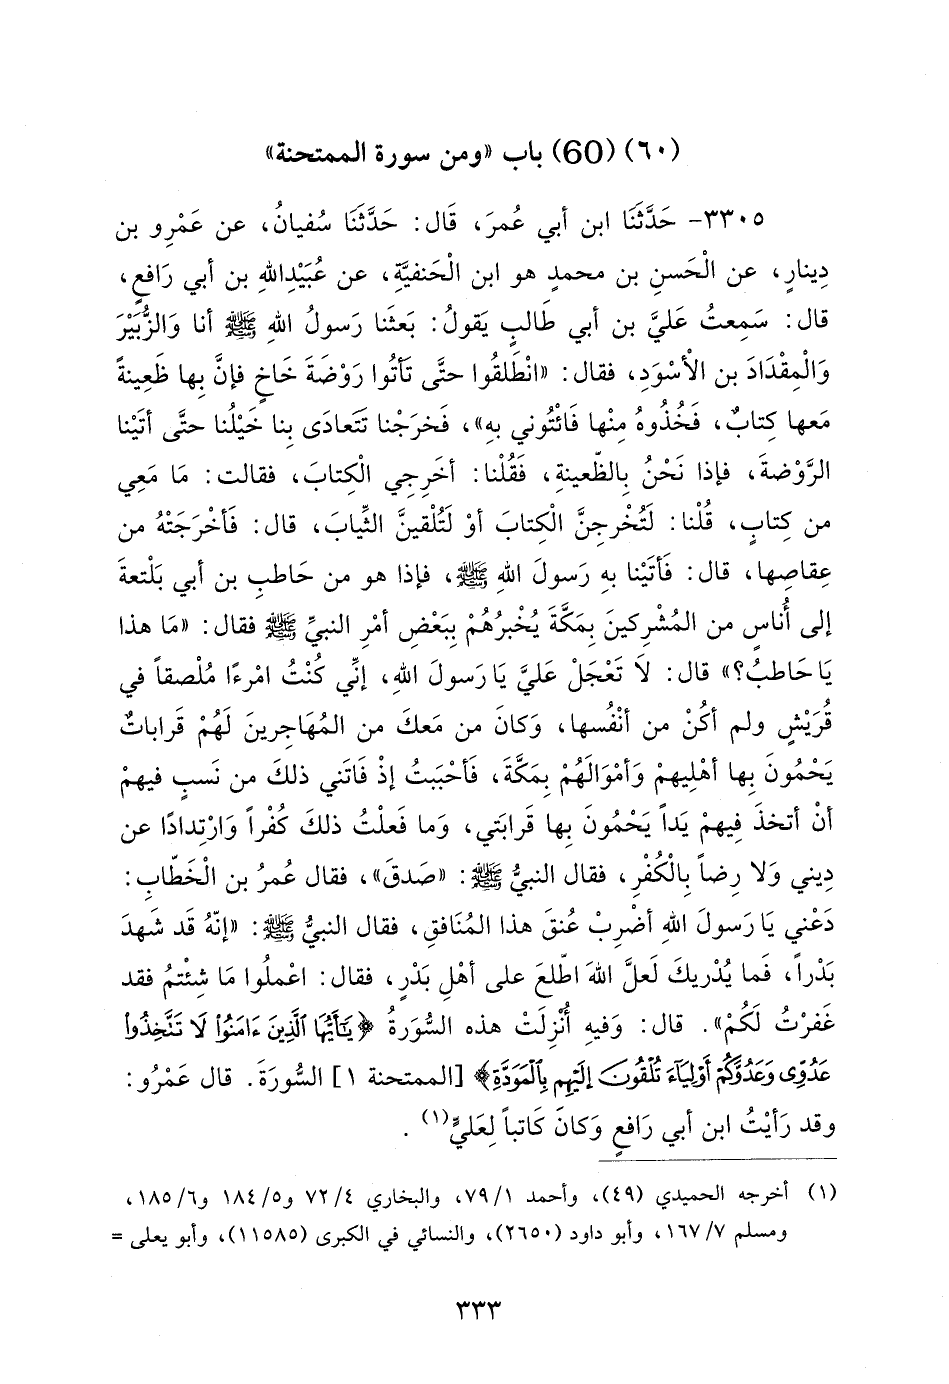 (٦٠) (60) باب «ومن سورة الممتحنة»
٣٣٠٥- حَدَّثَنَا ابن أبي عُمرَ، قَال: حَدَّثَنَا سُفيانُ، عن عَمْرِو بن
دِينارٍ، عن الْحَسنِ بن محمدٍ هو ابن الْحَنفيَّةِ، عن عُبَيْدِاللهِ بن أبي رَافعٍ،
قال: سَمِعتُ عَليَّ بن أبي طَالبٍ يَقولُ: بَعثَنا رَسولُ اللهِ ﷺ أنا وَالزُّبَيْرَ
وَالْمِقْدَادَ بن الأسْوَدِ، فقال: «انْطَلقُوا حتَّى تَأتُوا رَوْضَةَ خَاخٍ فإنَّ بِها ظَعِينةً
مَعها كِتابٌ، فَخُذُوهُ مِنْها فَائْتُوني بهِ»، فَخرَجْنا تَتَعادَى بِنا خَيْلُنا حتَّى أتَيْنا
الرَّوْضةَ، فإذا نَحْنُ بِالظّعينةِ، فَقُلْنا: أخَرِجِي الْكِتابَ، فقالت: مَا مَعِي
من كِتابٍ، قُلْنا: لَتُخْرِجنَّ الْكِتابَ أوْ لَتُلْقينَّ الثِّيابَ، قال: فَأخْرَجَتْهُ من
عِقاصِها، قال: فَأتَيْنا بهِ رَسولَ اللهِ ﷺ، فإذا هو من حَاطبِ بن أبي بَلْتعةَ
إلى أُناسٍ من المُشْرِكينَ بِمكَّةَ يُخْبرُهُمْ بِبَعْضِ أمْرِ النبيِّ ﷺ فقال: «مَا هذا
يَا حَاطبُ؟» قال: لاَ تَعْجَلْ عَليَّ يَا رَسولَ اللهِ، إنِّي كُنْتُ امْرءًا مُلْصقاً في
قُرَيْشٍ ولم أكُنْ من أنْفُسها، وَكانَ من مَعكَ من المُهَاجرينَ لَهُمْ قَراباتٌ
يَحْمُونَ بِها أهْلِيهمْ وَأمْوَالَهُمْ بِمكَّةَ، فَأحْبَبتُ إذْ فَاتَني ذلكَ من نَسبٍ فيهمْ
أنْ أتخذَ فِيهمْ يَداً يَحْمُونَ بِها قَرابَتي، وَما فَعلْتُ ذلكَ كُفْراً وَارْتِدادًا عن
دِيني وَلا رِضاً بِالْكُفْرِ، فقال النبيُّ ﷺ: «صَدقَ»، فقال عُمرُ بن الْخطّابِ:
دَعْني يَا رَسولَ اللهِ أضْرِبْ عُنقَ هذا المُنَافقِ، فقال النبيُّ ﷺ: «إنّهُ قَد شَهدَ
بَدْراً، فَما يُدْرِيكَ لَعلَّ اللهَ اطّلعَ على أهْلِ بَدْرٍ، فقال: اعْملُوا مَا شِئْتمُ فقد
غَفرْتُ لَكُمْ». قال: وَفيهِ أُنْزِلَتْ هذه السُّوَرةُ ﴿يَٰٓأَيُّهَا ٱلَّذِينَ ءَامَنُوا۟ لَا تَتَّخِذُوا۟
عَدُوِّى وَعَدُوَّكُمْ أَوْلِيَآءَ تُلْقُونَ إِلَيْهِم بِٱلْمَوَدَّةِ﴾ [الممتحنة ١] السُّورَةَ. قال عَمْرُو:
وقد رَأيْتُ ابن أبي رَافعٍ وَكانَ كَاتباً لِعَليٍّ(١).
(١) أخرجه الحميدي (٤٩)، وأحمد ١/ ٧٩، والبخاري ٤/ ٧٢ و٥/ ١٨٤ و٦/ ١٨٥،
ومسلم ٧/ ١٦٧، وأبو داود (٢٦٥٠)، والنسائي في الكبرى (١١٥٨٥)، وأبو يعلى =
٣٣٣